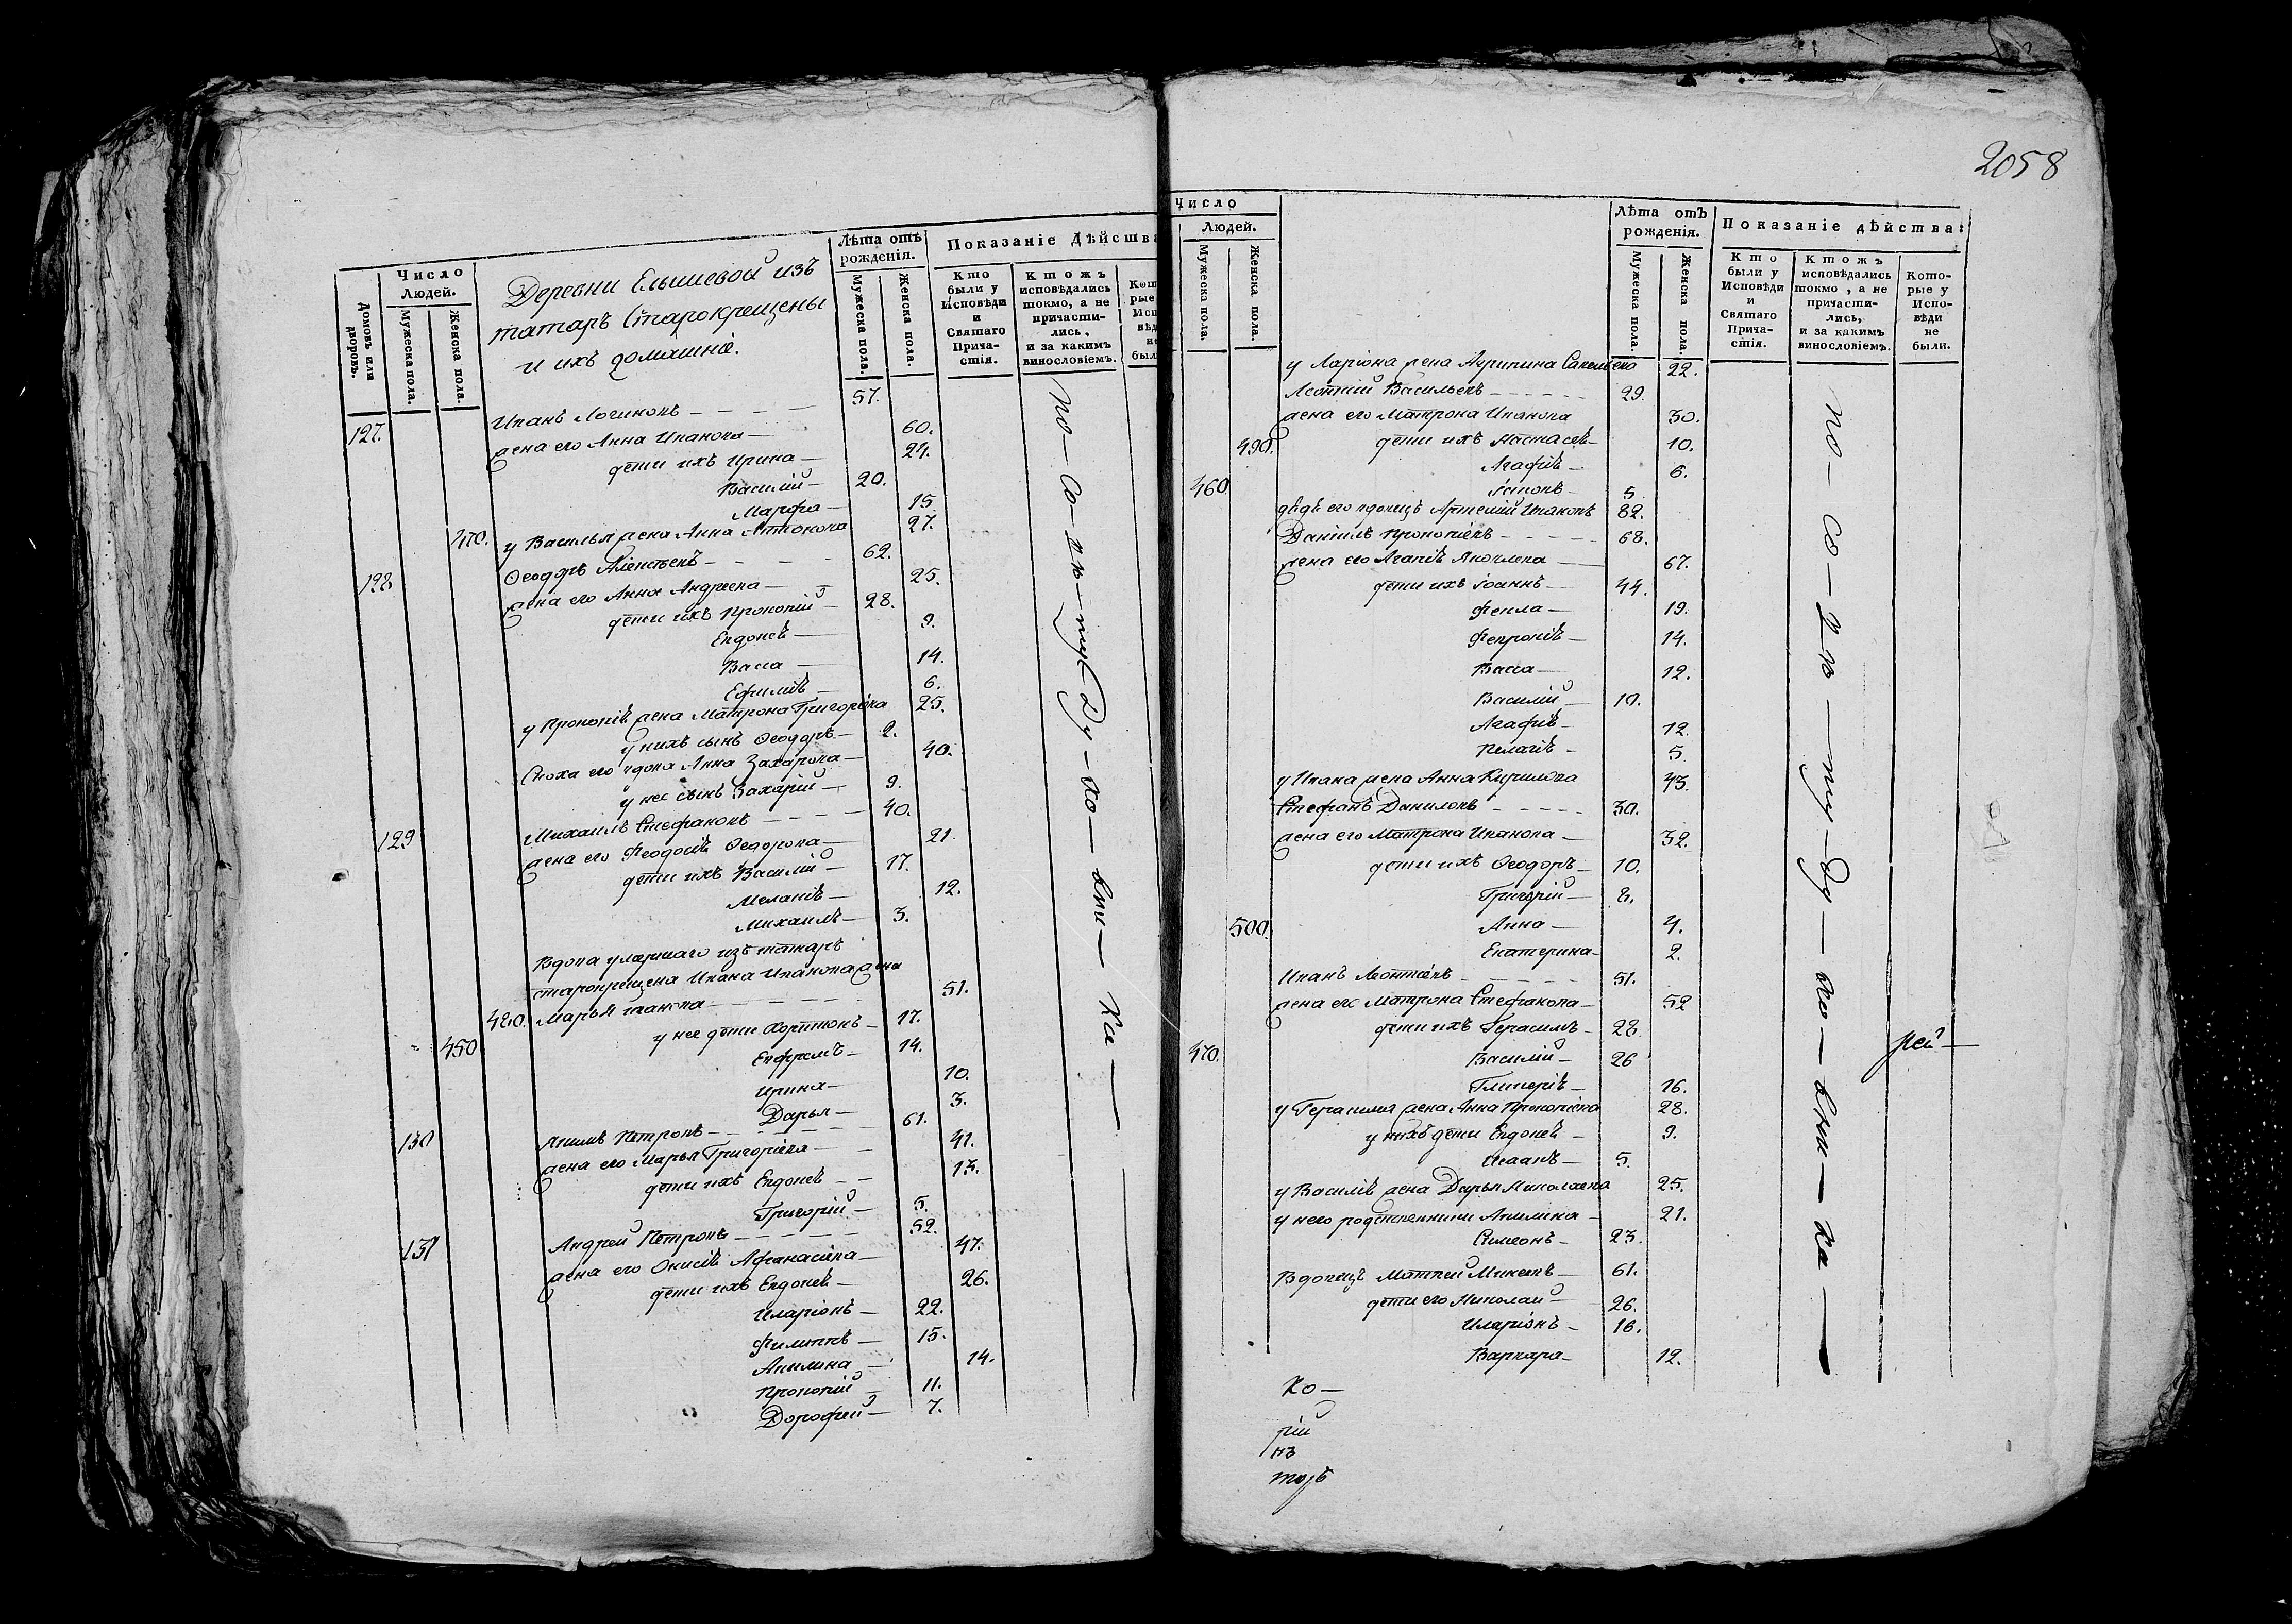 Домовъ или дворовъ.
Число Людей.
Мужеска пола.
Женска пола.
Деревни Елышевой изъ
татаръ Старокрещены
и ихъ домашніе.
Лѣта отъ рожденія.
Мужеска пола.
Женска пола.
Показаніе Дѣйства
Кто были у Исповѣди и Святаго Прича-стія.
Ктожъ исповѣдались токмо, а не причасти-лись, и за какимъ винословіемъ.
127. Иванъ Логиновъ 57.
жена его Анна Иванова 60.
дети ихъ Ирина 24.
Василій 20.
Марфа 15.
470. у Василья жена Анна Антонова 27.
128 Ѳеодоръ Алексѣевъ 62.
жена его Анна Андреева 25.
дети ихъ Прокопій 28.
Евдокеѣ 9.
Васса 14.
Ефиміѣ 6.
у Прокопіѣ жена Матрона Григорієва 25.
у нихъ сынъ Ѳеодоръ 2.
Сноха его вдова Анна Захарова 40.
у нее сынъ Захарій 9.
129 Михаилъ Стефановъ 40.
жена его Феодосіѣ Ѳедорова 21.
дети ихъ Василій 17.
Меланіѣ 12.
Михаилъ 3.
Вдова умершаго изъ татаръ
старокрещена Ивана Иванова жена
480. Марья 51.
450 у нее дети 17.
Ефремъ 14.
Ирина 10.
Дарья 3.
130 Петровъ 61.
жена его Марья Григорієва 41.
дети ихъ Евдокеѣ 13.
Григорій 5.
131 Андрей Петровъ 52.
жена его Онисіѣ Афанасієва 47.
дети ихъ Евдокеѣ 26.
Иларіонъ 22.
Филиппъ 15.
Акилина 14.
Прокопій 11.
Дорофей 7.
2058
Число
Людей.
Мужеска пола.
Женска пола.
Лѣта отъ рожденія.
Мужеска пола.
Женска пола.
Показаніе дѣйства:
Кто были у Исповѣди и Святаго Прича-стія.
Ктожъ исповѣдались токмо, а не причасти-лись, и за какимъ винословіемъ.
Кото-рые у Испо-вѣди не были.
у Ларіона жена Агрипина 22.
Леонтій Васильевъ 29.
жена его Матрона Иванова 30.
490. дети ихъ Настасеѣ 10.
Агафіѣ 6.
460 5
дѣдъ его вдовецъ Артемій Ивановъ 82.
Даніилъ Прокопіевъ 68.
жена его Агапіѣ Яковлева 67.
дети ихъ Іоаннъ 44.
Фекла 19.
Февроніѣ 14.
Васса 12.
Василій 10.
Агафіѣ 12.
Пелагіѣ 5.
у Ивана жена Анна Кирилова 43.
Стефанъ Даниловъ 30.
жена его Матрона Иванова 32.
дети ихъ Ѳеодоръ 10.
Григорій 8.
500. Анна 4.
Екатерина 2.
Иванъ Леонтієвъ 51.
жена его Матрона Стефанова 52
дети ихъ Герасимъ 28.
470. Василій 26
Гликеріѣ 16.
у Герасима жена Анна Прокопієва 28.
у нихъ дети Евдокеѣ 9.
Исаакъ 5.
у Василіѣ жена Дарья Николаева 25.
у него родственники Акилина 21.
Симеонъ 23.
Вдовецъ Матвей 61.
дети его Николай 26.
Иларіонъ 16.
Варвара 12.
Ко
рій
нъ
тожъ